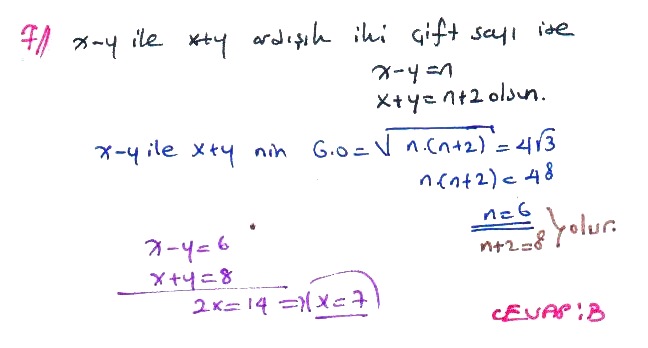 7// x-y ile x+y ardışık iki çift sayı ise
x-y=n
x+y=n+2 olsun.
x-y ile x+y nin G.O=√n.(n+2) = 4√3
n.(n+2)=48
n=6
n+2=8 } olur.
x-y=6
x+y=8
2x=14 => x=7
CEVAP:B